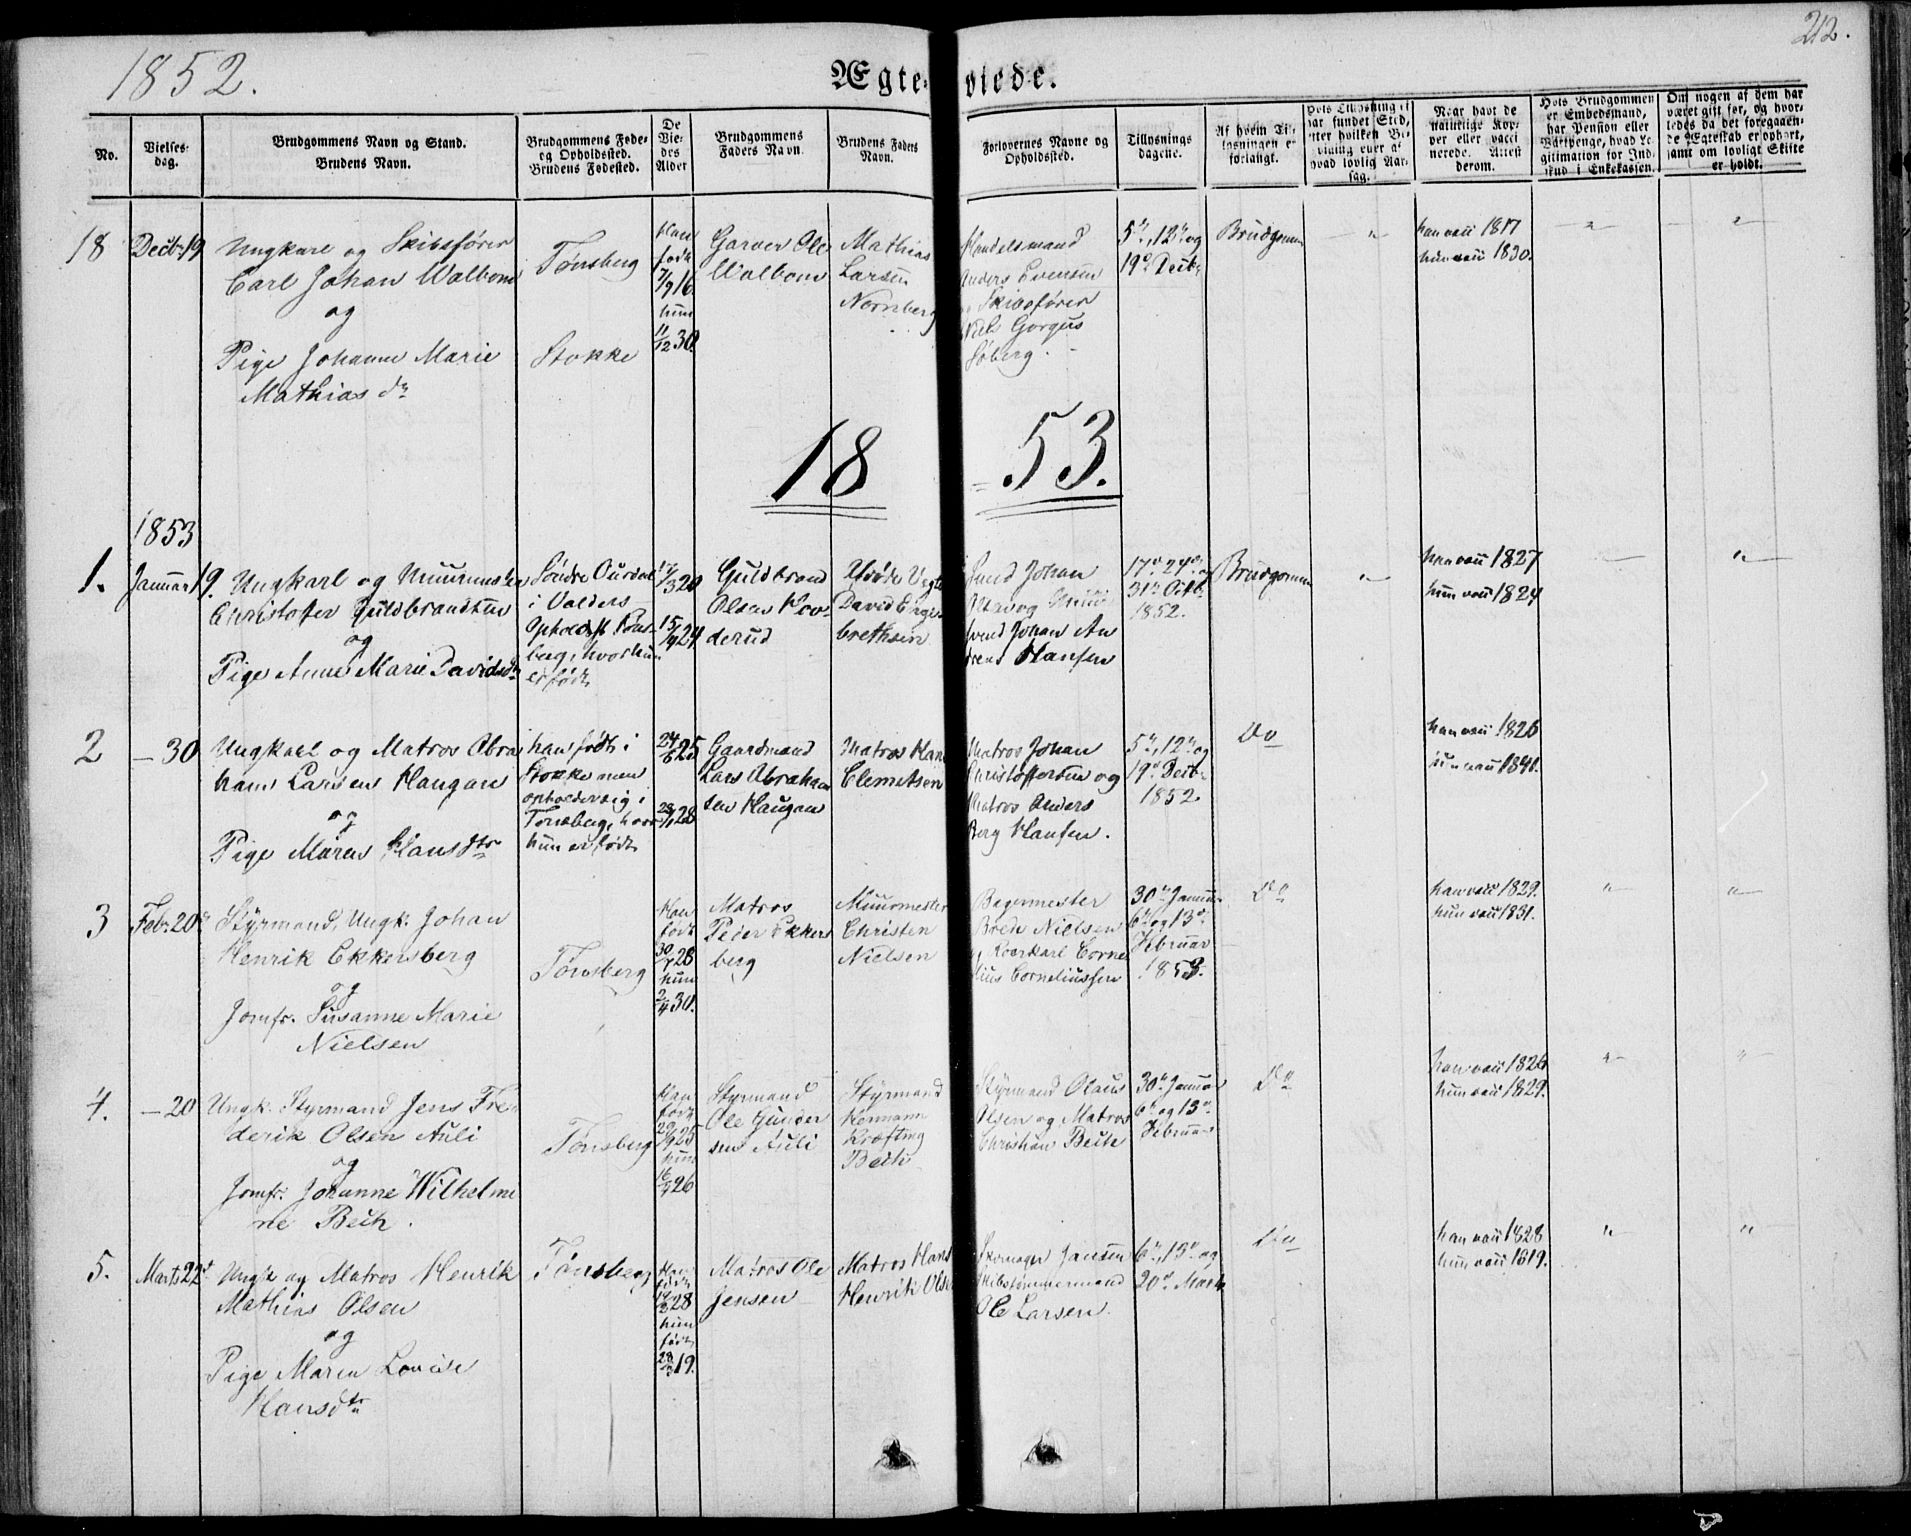 1852.
212.
Ægteviede.
No.
Vielses-
dag.
Brudgommens Navn og Stand.
Brudens Navn.
Brudgommens Føde-
og Opholdssted.
Brudens Fødested.
De
Vie-
des
Alder
Brudgommens
Faders Navn.
Brudens Faders
Navn.
Forlovernes Navne og
Opholdssted.
Tillysnings
dagene.
Af hvem Til-
lysningen er
forlangt.
har fundet Sted,
hvad lovlig Aar-
sag.
Naar havt de
naturlige Kop-
per eller vacci-
nerede. Attest
derom.
Hvis Brudgommen
er Embedsmand,
har Pension eller
Vartpenge, hvad Le-
gitimation for Ind-
skud i Enkekassen.
Om nogen af dem har
været gift før, og hvor-
ledes da det foregaaen-
de Ægteskab er ophørt,
samt om lovligt Skifte
er holdt.
18
Decbr 19
Ungkarl og Skibsfører
Carl Johan Walbom
og
Pige Johanne Marie
Mathias dr
Tønsberg
Stokke
Han
født
7/9 16.
hun
11/12 30.
Garver Ole
Walbom
Mathias
Larsen
Nornberg
Handelsmand
Anders Evensen
Skibsfører
Niels Gorgus
Søberg.
5te, 12te og
19de Decbr
Brudgommen
han vacc 1817
hun vacc 1830.
18 53.
1853
1.
Januar 19.
Ungkarl og Muurmester
Christofer Guldbrandsen
og
Pige Anne Marie Davidsdr
Søndre Ourdal
i Valders
Opholdst. Tøns-
berg, hvor hun
er født.
17/3 20
15/9 24
Guldbrand
Olsen Hov-
derud
Afdøde Vegter
David Enge-
brethsen
Svend Johan
Svend Johan An
Hansen
17de, 24de og
31te Octbr
1852.
Brudgommen
han vacc 1827
hun vacc 1824
2
- 30
Ungkarl og Matros Abra
ham Larsen Haugan
og
Pige Maren Hansdtr
han født i
Stokke men
opholder sig i
Tønsberg, hvor
hun er født
24/6 25
28/1 28
Gaardmand
Lars Abraham
sen Haugan
Matros Hans
Clemetsen
Matros Johan
Christoffersen og
Matros Anders
Berg Hansen.
5te, 12te og
19de Decbr
1852.
Do
han vacc 1826
hun vacc 1841.
3
Febr. 20de
Styrmand, Ungk. Johan
Henrik Ekkersberg
og
Jomfr. Susanne Marie
Nielsen
Tønsberg
Han
født
30/7 28
hun
2/4 30.
Matros
Peder Ekkers
berg
Muurmester
Christen
Nielsen
Bagermester
Bredo Nielsen
og Koerkarl Corne
lius Corneliussen
30te Januar
6te og 13de
Februar
1853.
Do
han vacc 1829.
hun vacc 1831.
4.
- 20
Ungk. Styrmand Jens Fre-
derik Olsen Auli
og
Jomfr. Johanne Wilhelmi
ne Bech.
Tønsberg
Han
født
29/9 25
hun
16/4 26
Styrmand
Ole Gunder
sen Auli
Styrmand
Hermann
Kræfting
Bech
Styrmand Olaus
Olsen og Matros
Christian Bech
30te Januar
6te og 13de
Februar
Do
han vacc 1826
hun vacc 1829.
5.
Marts 22d
Ungk og Matros Henrik
Mathias Olsen
og
Pige Maren Lovise
Hansdtr
Tønsberg
Han
født
14/3 28
hun
født
28/3 19.
Matros Ole
Jensen
Matros Hans
Henrik Olsen
Skomager Jansen
Skibstømmermand
Ole Larsen.
6te, 13de og
20de Marts
Do
han vacc 1828
hun vacc 1819.